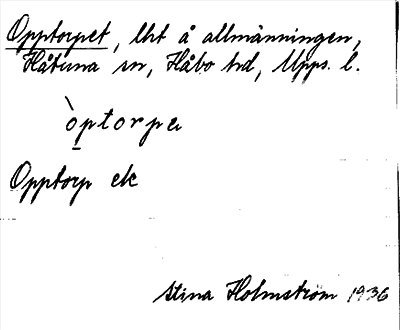 Opptorpet, lht å allmänningen,
Håtuna sn, Håbo hd, Upps. l.
òptorpa
Opptorp ek
Stina Holmström 1936